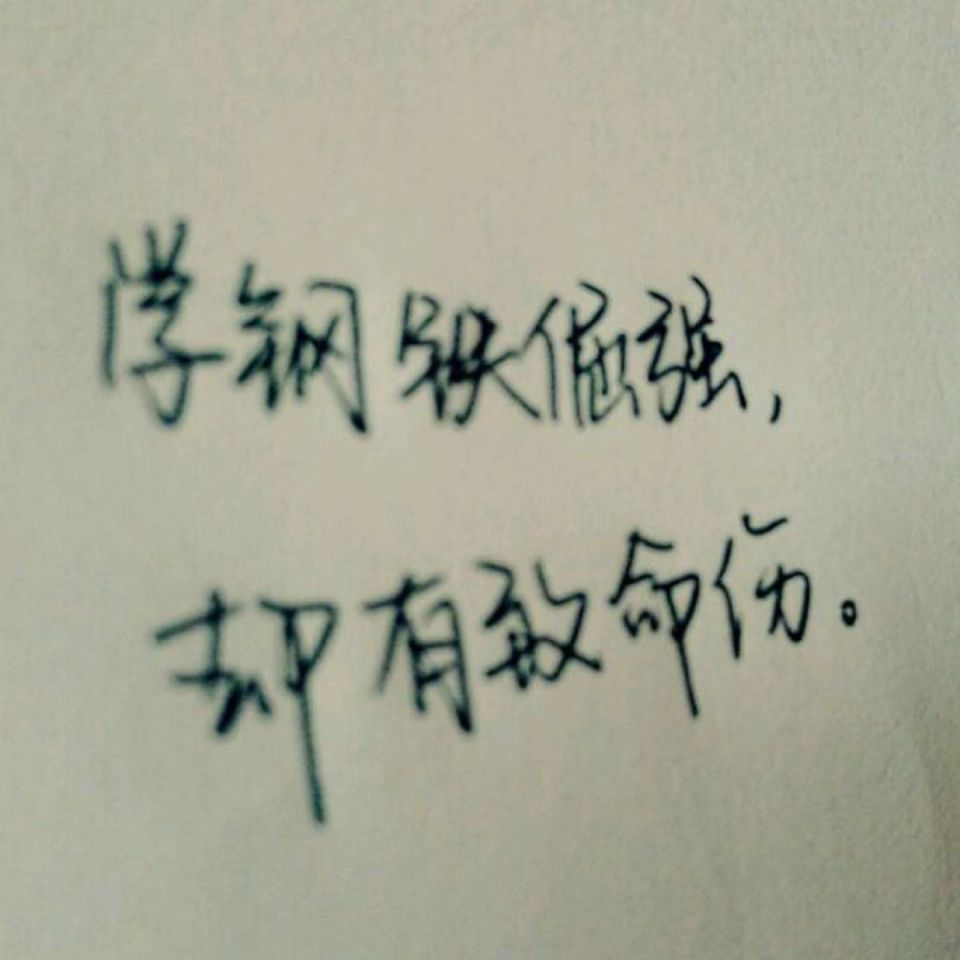 学钢铁倔强,
却有致命伤。